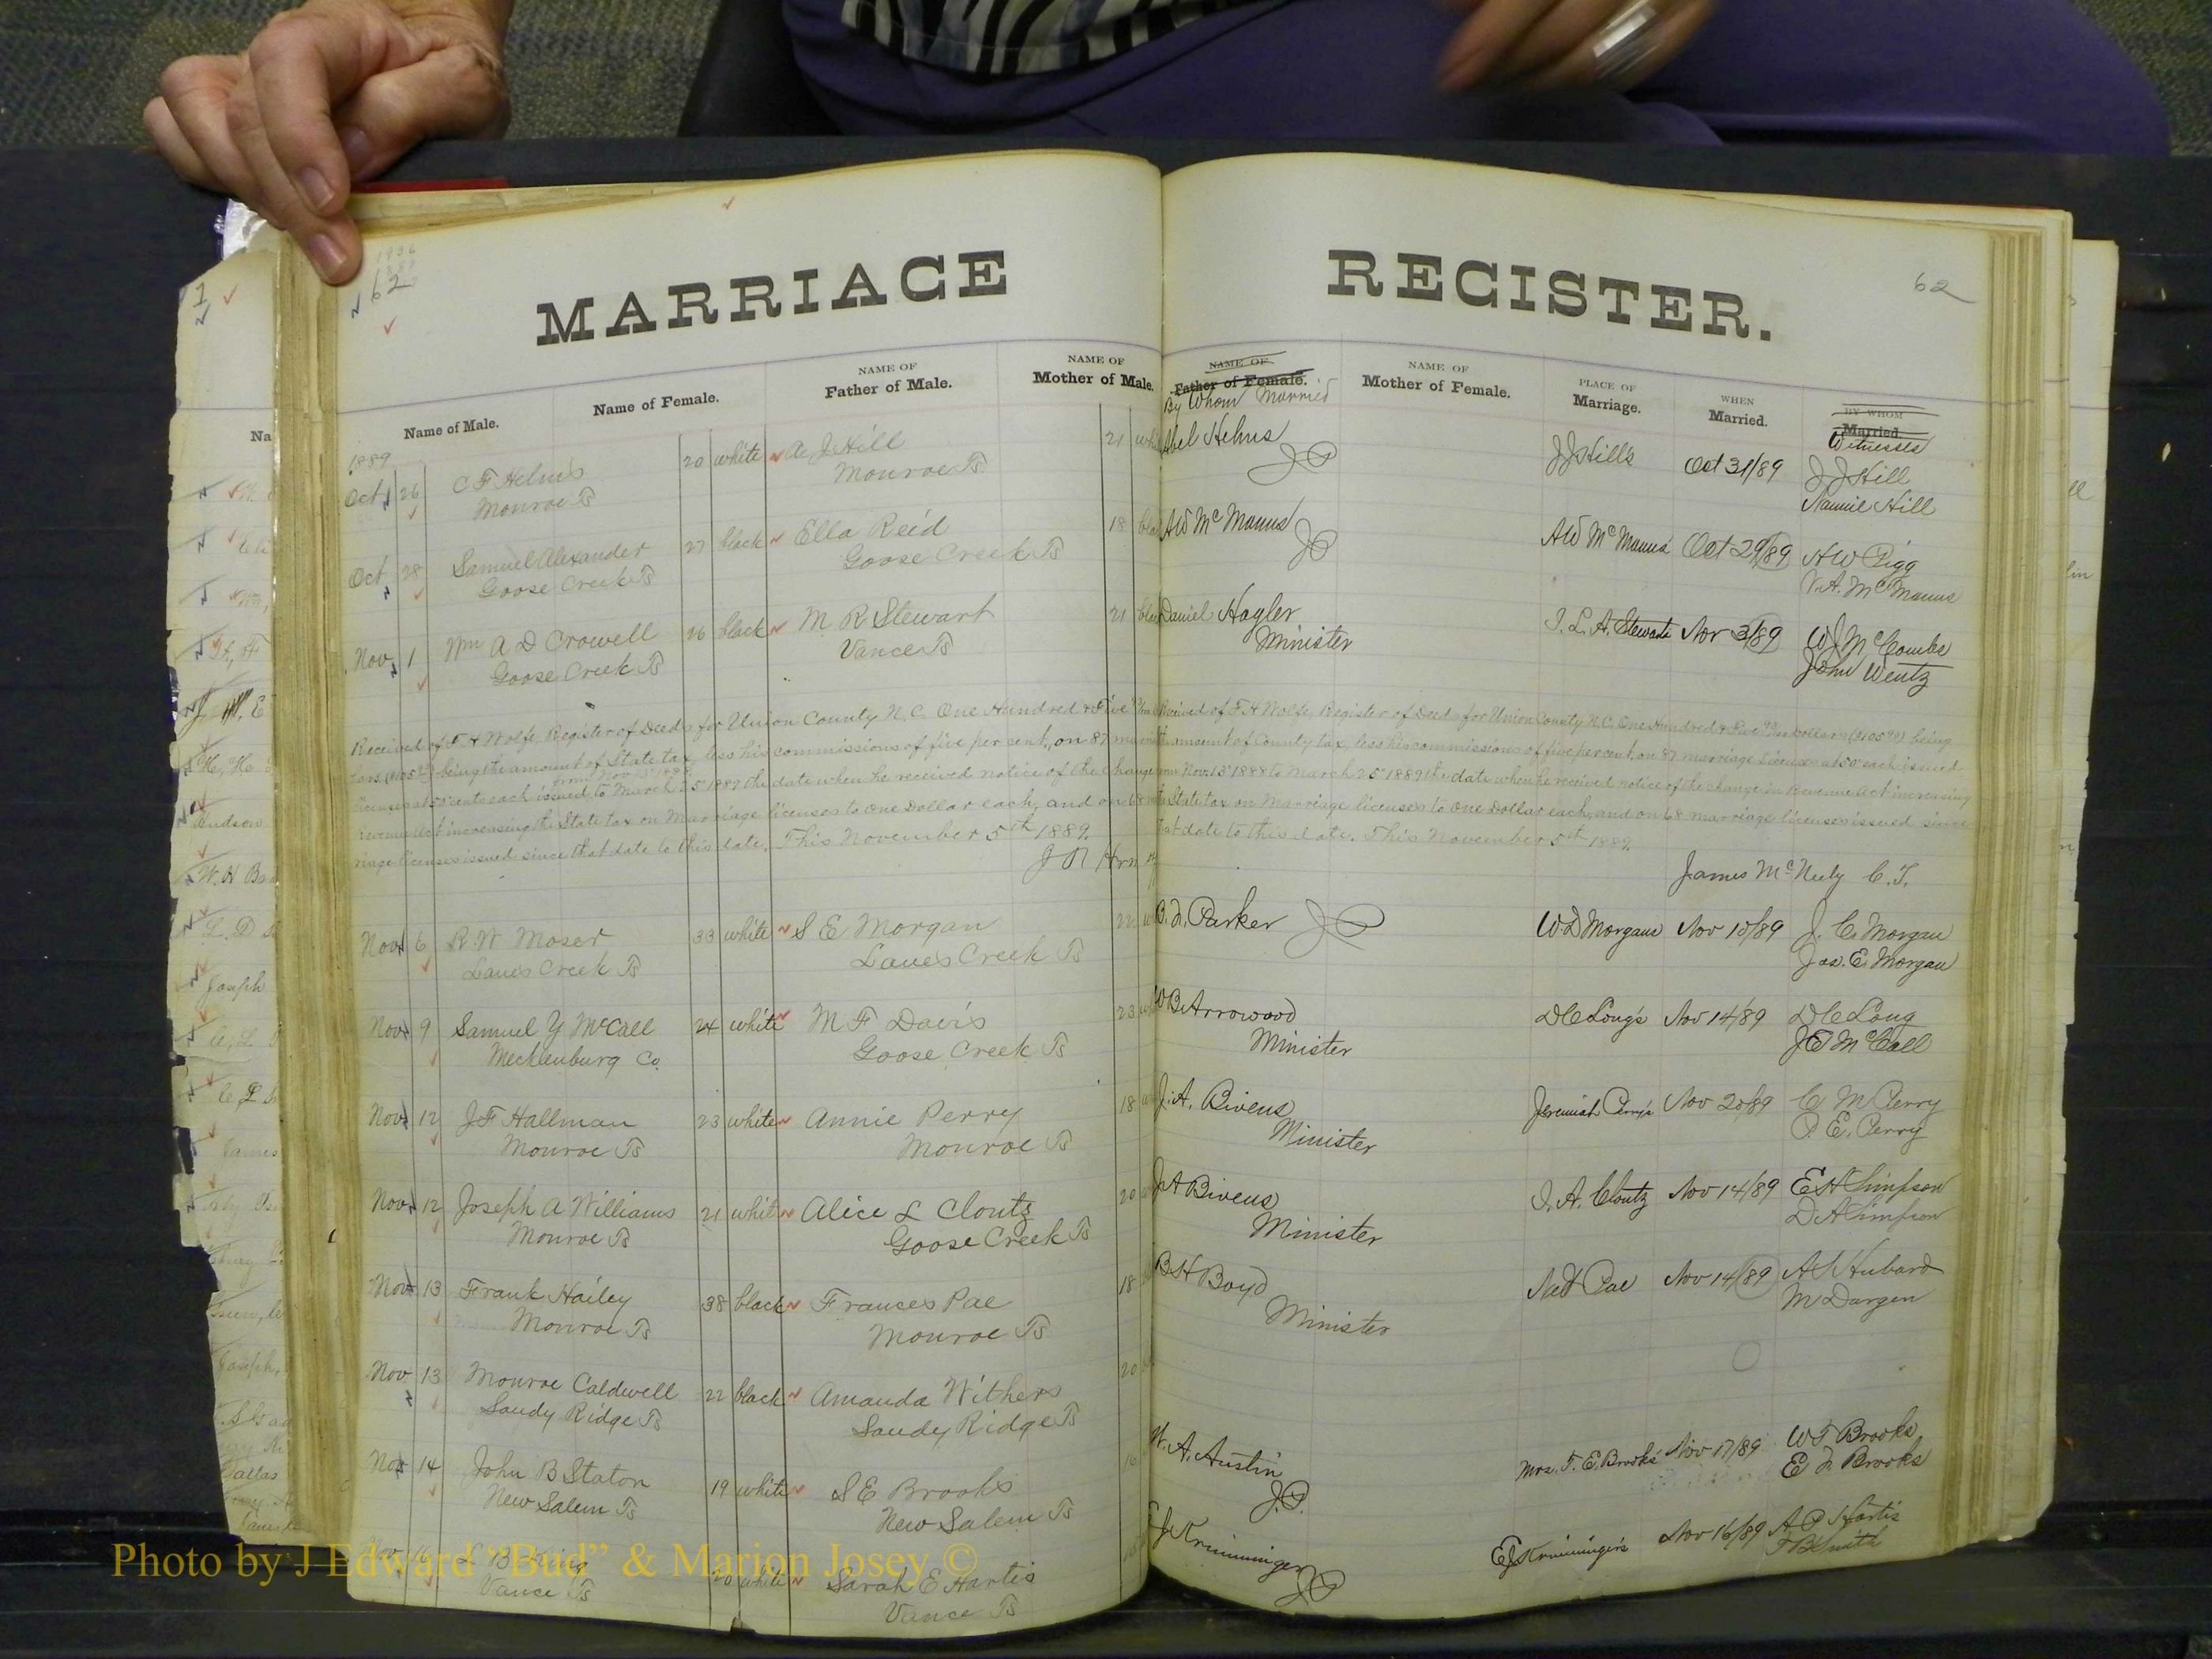 62
MARRIAGE
Name of Male.
Name of Female.
NAME OF
Father of Male.
NAME OF
Mother of Male.
1889
Oct 26 C F Helms 20 white A J Hill 21
Monroe Ts Monroe Ts
Oct 28 Samuel Alexander 27 black Ella Reid 18
Goose Creek Ts Goose Creek Ts
Nov 1 Wm A D Crowell 26 black M R Stewart 21
Goose Creek Ts Vance Ts
Received of F. H Wolfe Register of Deeds for Union County N. C. One Hundred & Five
being the amount of State tax, less his commissions of five per cent, on 87
from Nov 15 1888
licenses at 50 cents each issued to March 25 1889 the date when he received notice of the change
Revenue Act increasing the State tax on Marriage licenses to One Dollar each, and on 68
riage licenses issued since that date to this date. This November 5th 1889.
Nov 6 R. W Moser 33 white S E Morgan 22
Lanes Creek Ts Lanes Creek Ts
Nov 9 Samuel Y McCall 24 white M F Davis 23
Mecklenburg Co. Goose Creek Ts
Nov 12 J F Hallman 23 white Annie Perry 18
Monroe Ts Monroe Ts
Nov 12 Joseph A Williams 21 white Alice L Clontz 20
Monroe Ts Goose Creek Ts
Nov 13 Frank Hailey 38 black Frances Pae 18
Monroe Ts Monroe Ts
Nov 13 Monroe Caldwell 22 black Amanda Withers 20
Sandy Ridge Ts Sandy Ridge Ts
Nov 14 John B Staton 19 white S E Brooks
New Salem Ts New Salem Ts
Nov 16 L B King 20 white Sarah E Hartis
Vance Ts Vance Ts
REGISTER.
62
NAME OF
Father of Female.
By Whom Married
NAME OF
Mother of Female.
PLACE OF
Marriage.
WHEN
Married.
BY WHOM
Married
Witnesses
Abel Helms J J Hill's Oct 31/89 J J Hill
JP Nannie Hill
AW McManus AW McManus' Oct 29/89 A W Pigg
JP V. A. McManus
Daniel Hagler I. L. A. Stewarts Nov 3/89 W J McCombs
Minister John Wentz
Received of F. H Wolfe Register of Deeds for Union County N. C. One Hundred & Five Dollars being
the amount of County tax, less his commissions of five per cent, on 87 marriage licenses at 50 each issued
from Nov. 15 1888 to March 25 1889 the date when he received notice of the change in Revenue Act increasing
the State tax on Marriage licenses to One Dollar each, and on 68 marriage licenses issued since
that date to this date. This November 5th 1889.
James McNeely C. T.
B. F. Parker JP W D Morgans Nov 10/89 J. C. Morgan
Jas. E. Morgan
W B Arrowood D C Long's Nov 14/89 D C Long
Minister J T McCall
J. A. Bivens Jeremiah Perry's Nov 20/89 C M Perry
Minister P. E. Perry
J A Bivens I. A. Clontz Nov 14/89 E H Simpson
Minister D A Simpson
B H Boyd Nat Pae Nov 14/89 A S Hubard
Minister M Dargen
W. A. Austin Mrs. T. E. Brooks' Nov 17/89 W T Brooks
J.P. E F Brooks
E J Krimminger E J Krimminger's Nov 16/89 A P Hartis
JP F B Smith
Photo by J Edward "Bud" & Marion Josey ©